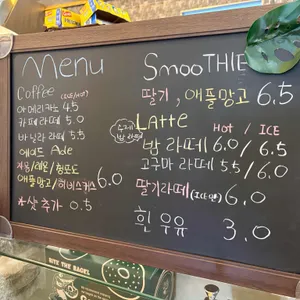 Menu
Coffee (ICE/HOT)
아메리카노 4.5
카페라떼 5.0
바닐라라떼 5.5
에이드 Ade
자몽/레몬/청포도
애플망고/히비스커스 6.0
*샷추가 0.5
SmooTHIE
딸기, 애플망고 6.5
Latte
수제 밤 라떼
HOT / ICE
밤 라떼 6.0 / 6.5
고구마 라떼 5.5 / 6.0
딸기라떼 (ICE only) 6.0
흰 우유 3.0
BITE THE BAGEL